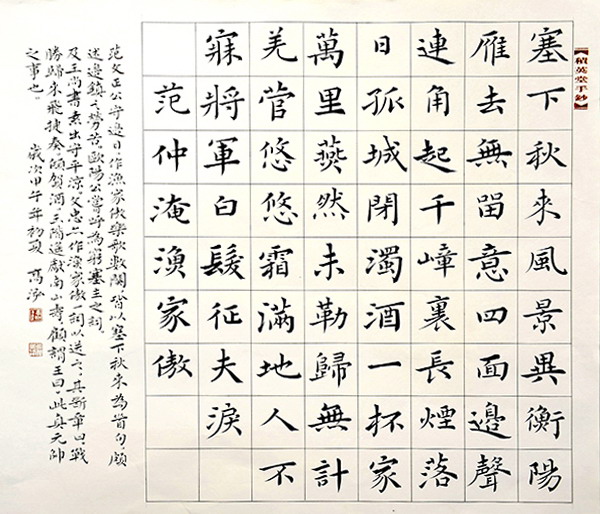 【積英堂手鈔】
塞下秋來風景異衡陽
雁去無留意四面邊聲
連角起千嶂裏長煙落
日孤城閉濁酒一杯家
萬里燕然未勒歸無計
羌管悠悠霜滿地人不
寐將軍白髮征夫淚
范仲淹漁家傲
范文正公守邊日作漁家傲樂歌數闋皆以塞下秋來為首句頗
述邊鎮之勞苦歐陽公嘗呼為窮塞主之詞
及王尚書素出守平涼文忠亦作漁家傲一詞以送之其斷章曰戰
勝歸來飛捷奏傾賀酒玉階遙獻南山壽顧謂王曰此真元帥
之事也。 歲次甲午年初夏